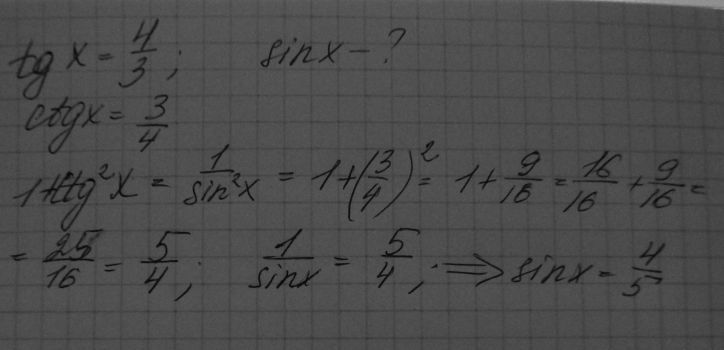 tg x = 4/3; sin x - ?
ctgx = 3/4
1+ctg²x = 1/sin²x = 1+(3/4)² = 1+9/16 = 16/16+9/16=
= 25/16 = 5/4; 1/sinx = 5/4; ⇒ sinx = 4/5